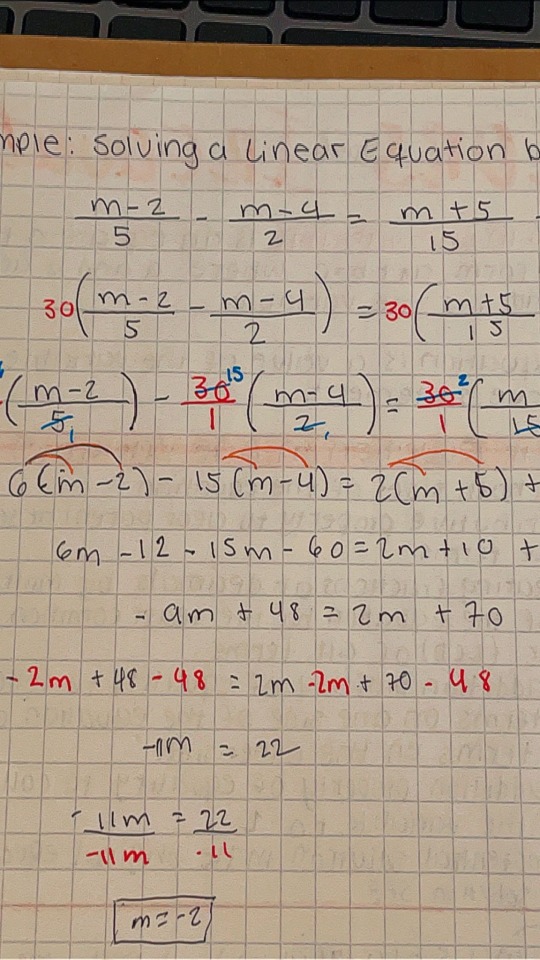 mple: Solving a Linear Equation b
m-2/5 - m-4/2 = m+5/15
30(m-2/5 - m-4/2) = 30(m+5/15
(m-2/5 1) - 30 15/1 (m-4/2 1) = 30 2/1 (m/15
6(m-2) - 15(m-4) = 2(m+5) +
6m - 12 - 15m - 60 = 2m + 10 +
- 9m + 48 = 2m + 70
- 2m + 48 - 48 = 2m - 2m + 70 - 48
-11m = 22
-11m/-11m = 22/-11
m = -2